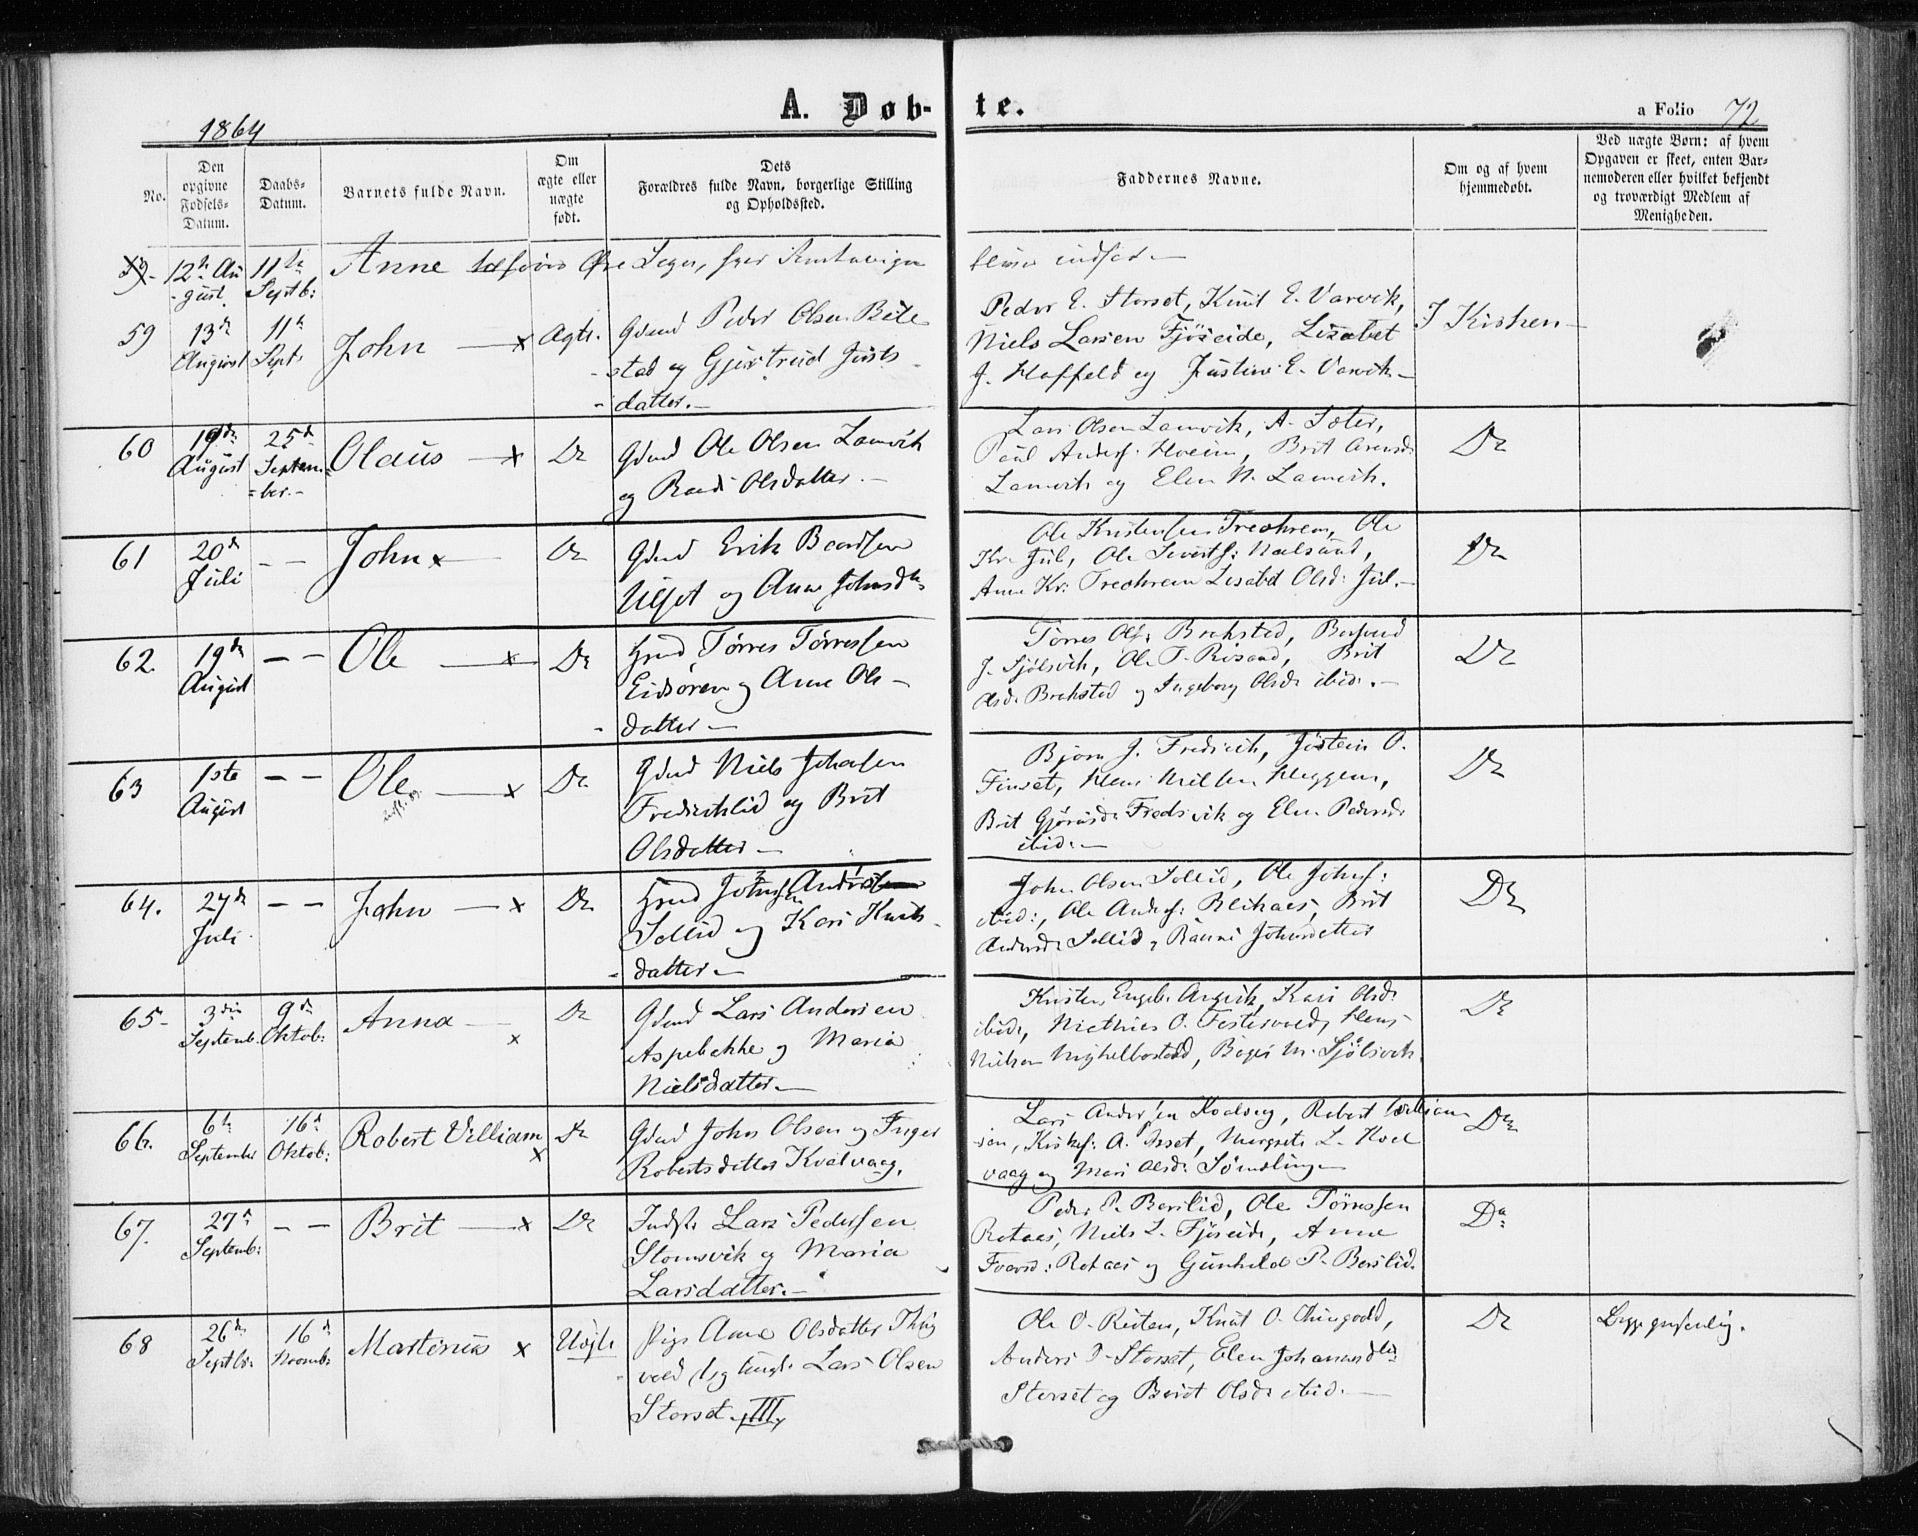 1864
A. Døb-
te.
a Folio 72
No.
Den opgivne Fødsels-Datum.
Daabs-Datum.
Barnets fulde Navn.
Om ægte eller uægte født.
Dets Forældres fulde Navn, borgerlige Stilling og Opholdssted.
Faddernes Navne.
Om og af hvem hjemmedøbt.
Ved uægte Børn: af hvem Opgaven er skeet, enten Barnemoderen eller hvilket bekjendt og troværdigt Medlem af Menigheden.
59 12te August 11te Septb: Anne
59 13de August 11te Sept. John Ægte.
Gdmd Peder Olsen Bele-
stad og Gjertrud Josts-
datter.
Peder E. Storset, Knut E. Varvik,
Niels Larsen Fjøseide, Lisabet
J. Hoffeld og Justine E. Varvik
I Kirken
60 19de August 25de September Olaus Do
Gdmd Ole Olsen Lamvik
og Olsdatter.
Lars Olsen Lamvik, A. Sæter,
Paul Anders: Hoeim, Brit
Lamvik og Elen N. Lamvik.
Do
61 20de Juli - - John Do
Gdmd Erik Baardsen
Ulset og Anne Johnsdtr
Ole Kristensen Trechrem, Ole
Kr. Jul, Ole Siverts:
Anne Kr: Trechrem Lisabet Olsd: Jul.
Do
62. 19de August - - Ole Do
Tørres Tørressen
Eidsøren og Anne Ols-
datter
Tørres Ols: Brekstad,
J. Sjølsvik, Ole T. Risand, Brit
Olsd: Brekstad og Ingeborg Olsd: ibid.
Do
63 1ste August - - Ole Do
Gdmd Niels Johnsen
Fredriklid og Brit
Olsdatter
Bjørn J. Fredsvik, Jøstein O.
Finset, Hans Nilsen Heggem,
Brit Gjørusd: Fredsvik og Elen Pedersd:
ibid:
Do
64. 27de Juli - - John Do
Johnsen Anders
Sollid og Kari Knuts-
datter
John Olsen Sollid, Ole Johns:
ibid:, Ole Anders: Blikaas, Brit
Andersd: Sollid, Johnsdatter
Do
65 3die Septemb. 9de Oktob: Anna Do
Gdmd Lars Andersen
Aspebakke og Maria
Nielsdatter
Kristen Engeb: Angvik, Kari Olsd:
ibid:, Mathias O. Festervold, Hans
Nielsen Sjølsvik.
Do
66. 6te September 16de Oktob: Robert Villiam Do
Gdmd John Olsen og Inger
Robertsdatter Kvalvaag.
Lars Andersen Kvalvag, Robert William-
sen, A. Isset, Margrete L. Kval-
vaag og Mari Olsd:
Do
67. 27de Septemb: - - Brit Do
Indst: Lars Pedersen
Stomsvik og Maria
Larsdatter.
Peder P. Berslid, Ole Tørressen
Rotaas, Niels L. Fjøseide, Anne
Rotaas og Gunhild P. Berslid.
Do
68 26de Septbr. 16de Novmb: Martinus Uægte
Pige Anne Olsdatter
vold og Ungk: Lars Olsen
Storset III
Ole O. Reiten, Knut O.
Anders Storset, Elen Johannesdtr
Storset og Berit Olsd: ibid.
Do